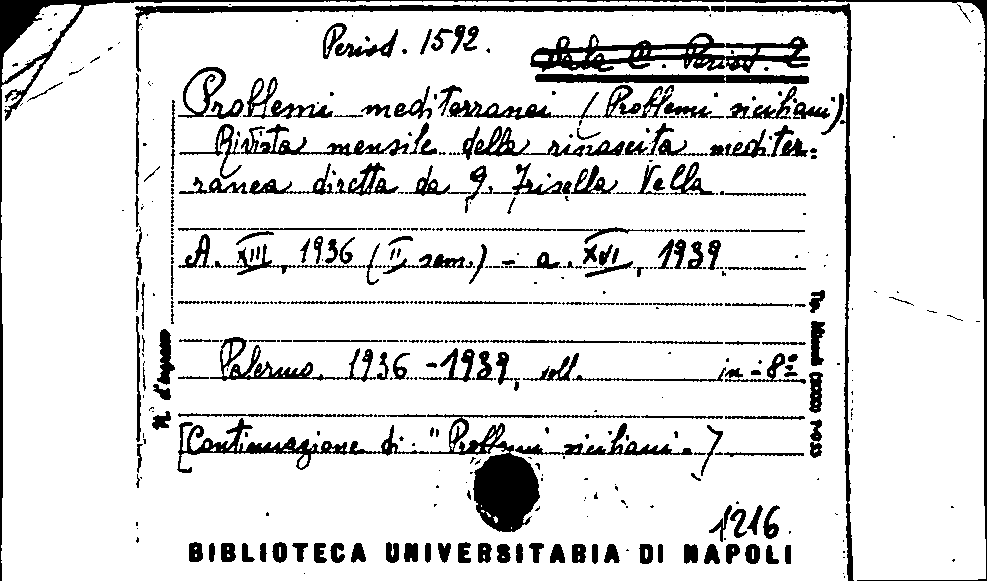 Period. 1592.
Sala C. Period. 2
Problemi mediterranei (Problemi siciliani).
Rivista mensile della rinascita mediter=
ranea diretta da G. Frisella Vella.
A. XIII, 1936 (II sem.) - a. XVI, 1939
Palermo. 1936 - 1939, voll. in-8°.
[Continuazione di: "Problemi siciliani".]
1216.
BIBLIOTECA UNIVERSITARIA DI NAPOLI
N. d'ingresso
Tip.